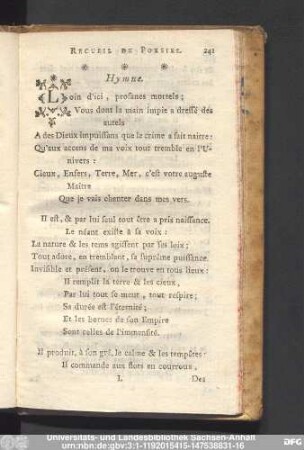 RECUEIL DE POESIES. 241
Hymne.
Loin d'ici, profanes mortels;
Vous dont la main impie a dressé des
autels
A des Dieux impuissans que le crime a fait naitre:
Qu'aux accens de ma voix tout tremble en l'U-
nivers:
Cieux, Enfers, Terre, Mer, c'est votre auguste
Maître
Que je vais chanter dans mes vers.
Il est, & par lui seul tout être a pris naissance.
Le néant existe à sa voix:
La nature & les tems agissent par ses loix;
Tout adore, en tremblant, sa suprême puissance.
Invisible et présent, on le trouve en tous lieux:
Il remplit la terre & les cieux,
Par lui tout se meut, tout respire;
Sa durée est l'éternité;
Et les bornes de son Empire
Sont celles de l'immensité.
Il produit, à son gré, le calme & les tempêtes:
Il commande aux flots en courroux,
I. Des
Universitäts- und Landesbibliothek Sachsen-Anhalt
urn:nbn:de:gbv:3:1-1192015415-147538831-16
DFG